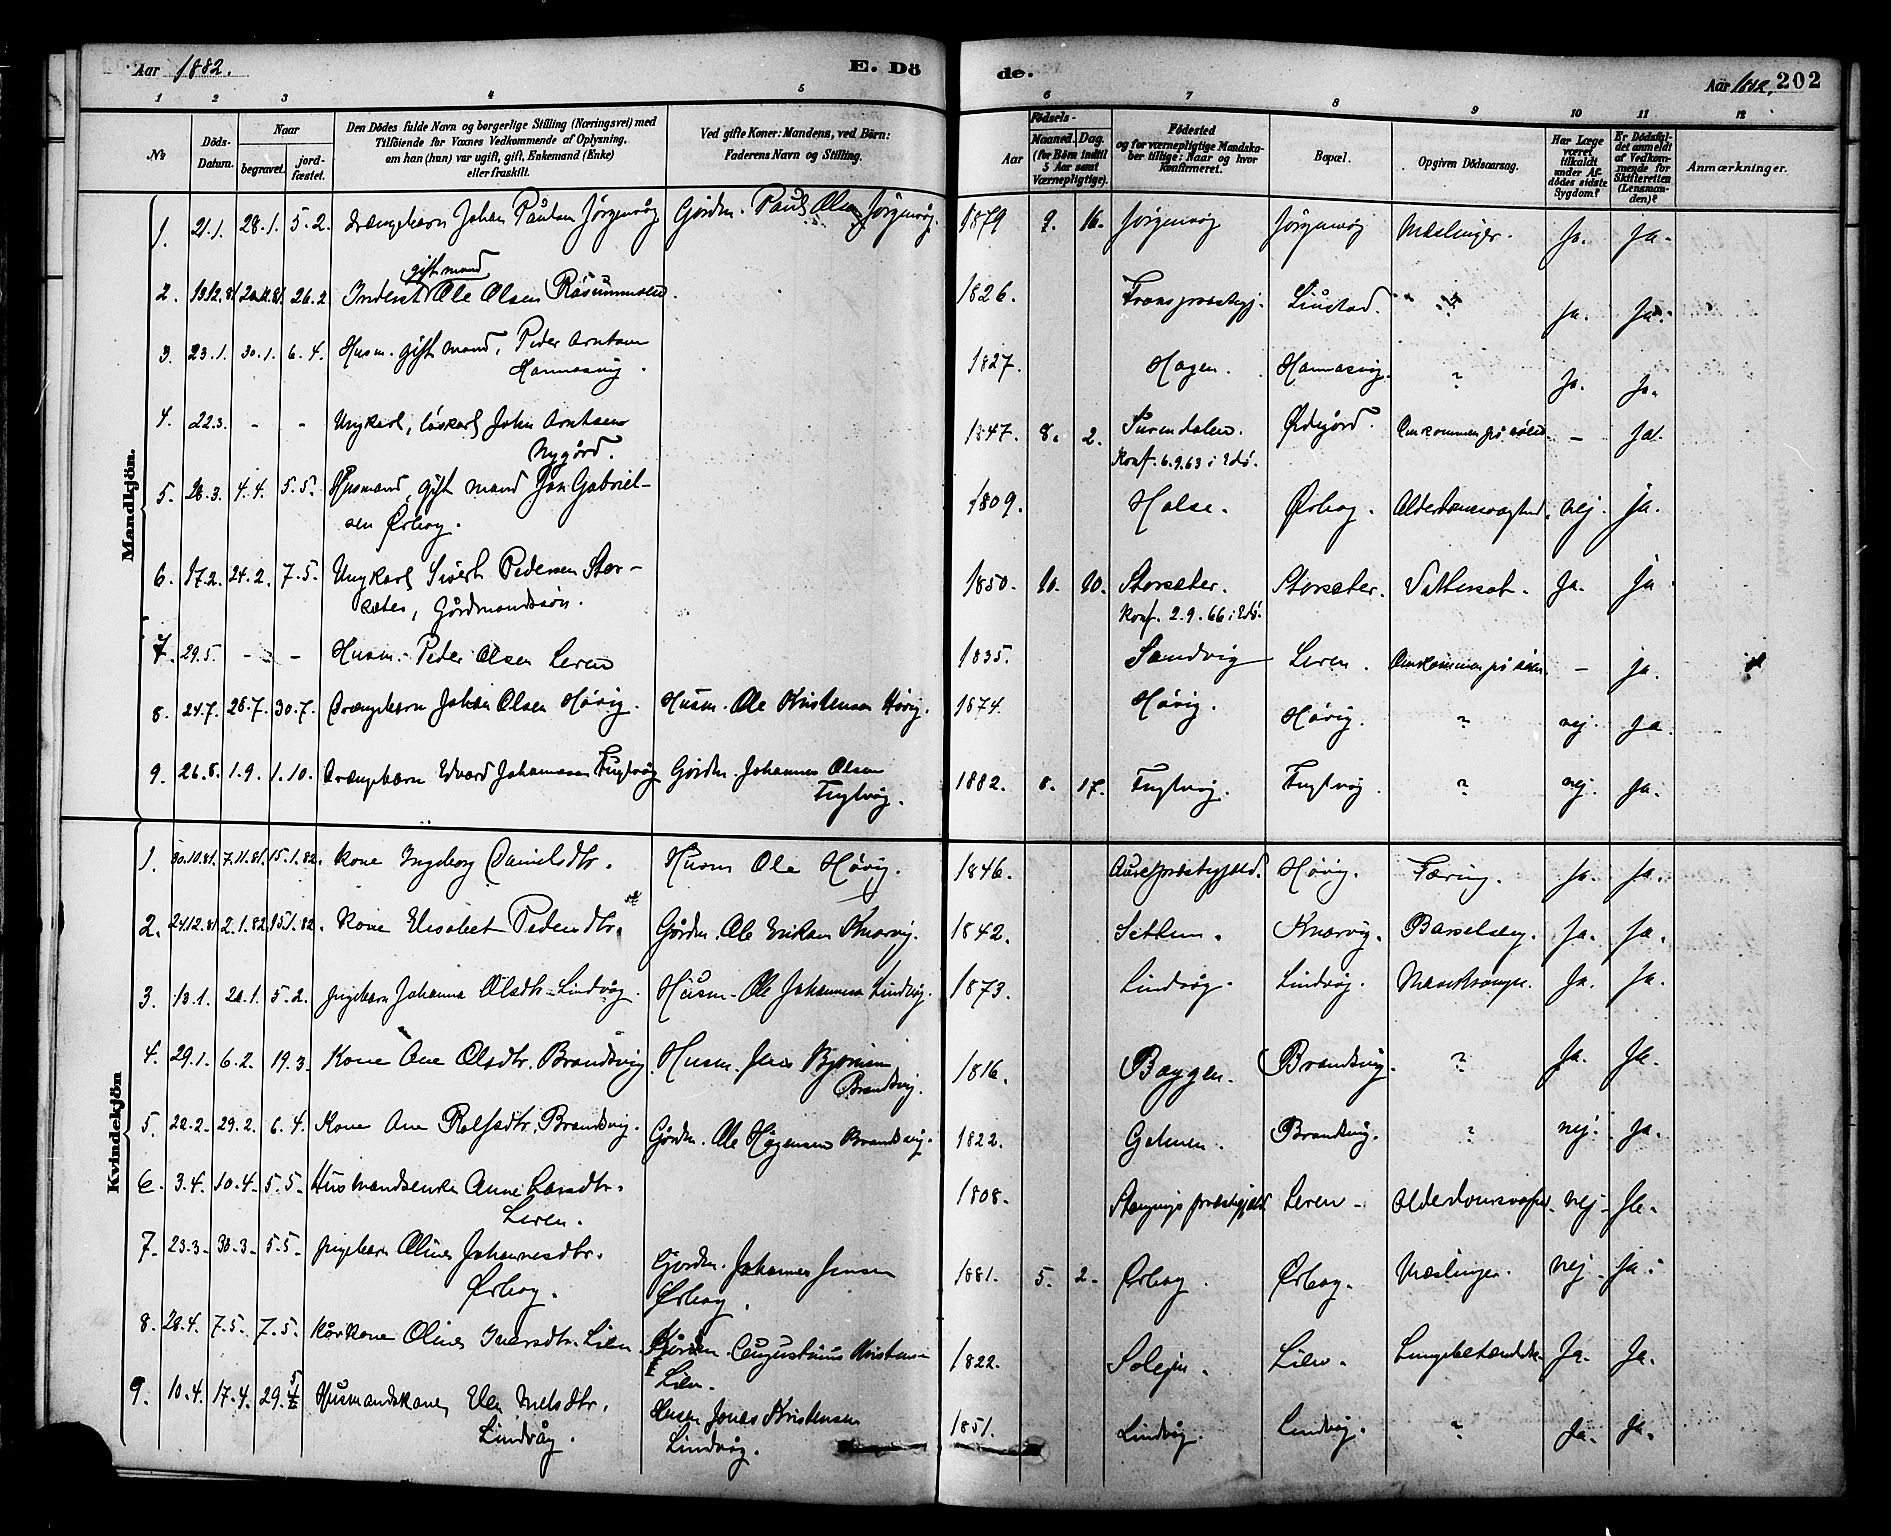 Aar 1882. E. Dö de. Aar 1882. 202
1 2 3 4 5 6 7 8 9 10 11 12
№ Döds-Datum. Naar begravet. jord-fæstet. Den Dödes fulde Navn og borgerlige Stilling (Næringsvei) med Tilföiende for Voxnes Vedkommende af Oplysning, om han (hun) var ugift, gift, Enkemand (Enke) eller fraskilt. Ved gifte Koner: Mandens, ved Börn: Faderens Navn og Stilling. Födsels- Aar Maaned. Dag. (for Börn indtil 5 Aar samt Værnepligtige). Födested og for værnepligtige Mandskaber tillige: Naar og hvor Konfirmeret. Bopæl. Opgiven Dödsaarsag. Har Læge været tilkaldt under Afdödes sidste Sygdom? Er Dödsfaldet anmeldt af Vedkommende for Skifteretten (Lensmanden)? Anmærkninger.
Mandkjön.
1. 21.1. 28.1. 5.2. Drængebarn Johan Paulsen Jørgenvåg Gårdm. Paul Olsen Jørgenvåg. 1879 9. 16. Jørgenvåg Jørgenvåg Mæslinger. Ja. Ja.
gift mand
2. 13.12.81 26.2. Inderst Ole Olsen 1826. Liustad. " Ja. Ja.
3. 23.1. 30.1. 6.4. Husm. gift mand, Peder Arntsen
Hannasvig. 1827. Hagen. Hannasvig. ? Ja. Ja.
4. 22.3. - - Ungkarl, løskarl John Arntsen
Nygård. 1847. 8. 2. Surendalen. Ødegård. Omkommen på søen. - Ja.
Konf. 6.9.63 i Edø.
5. 26.3. 4.4. 5.5. Husmand, gift mand Jon Gabriel-
sen Ørbog. 1809. Halse. Ørbog. Alderdomssvaghed. nej. ja.
6. 17.2. 24.2. 7.5. Ungkarl Sivert Pedersen Stor-
sæter, Gårdmandssøn. 1850. 10. 10. Storsæter. Storsæter. Vattersot. Ja. Ja
Konf. 2.9.66 i Edø.
7. 29.5. - - Husm. Peder Olsen Leren 1835. Sandvig Leren. Omkommen på søen. - Ja.
8. 24.7. 28.7. 30.7. Drængebarn Johan Olsen Høvig. Husm. Ole Kristensen Høvig. 1874. Høvig. Høvig. ? nej. ja.
9. 26.8. 1.9. 1.10. Drængebarn Edvard Johannesen Fuglvåg Gårdm. Johannes Olsen
Fuglvåg. 1882. 8. 17. Fuglvåg. Fuglvåg. ? nej. Ja.
Kvindekjön
1. 30.10.81. 7.11.81. 15.1.82. Kone Ingeborg Danielsdtr. Husm Ole Høvig. 1846. Aure præstegjæld. Høvig. Tæring. Ja. Ja.
2. 24.12.81 2.1.82 15.1.82. Kone Elisabet Pedersdtr. Gårdm. Ole Eriksen Knarvig. 1842. Settem. Knarvig. Barselseng. Ja. Ja.
3. 13.1. 20.1. 5.2. pigebarn Johanna Olsdtr. Lindvåg. Husm. Ole Johannesen Lindvåg. 1873. Lindvåg. Lindvåg. Mavekrampe. Ja. Ja.
4. 29.1. 6.2. 19.3. Kone Ane Olsdtr. Brandsvig. Husm. Jens
Brandsvig. 1816. Bøygen. Brandsvig. ? Ja. Ja.
5. 22.2. 29.2. 6.4. Kone Ane Rolfsdtr. Brandsvig. Gårdm. Ole Hågensen Brandsvig. 1822. Brandsvig. ? nej. Ja.
6. 3.4. 10.4. 5.5. Husmandsenke Anne Larsdtr.
Leren. 1808. Stangvigs præstegjæld. Leren. Alderdomssvaghed. nej. Ja.
7. 23.3. 30.3. 5.5. pigebarn Oline Johannesdtr.
Ørbog. Gårdm. Johannes Jonsen
Ørbog. 1881. 5. 2. Ørbog. Ørbog. Mæslinger. nej. Ja.
8. 28.4. 7.5. 7.5. Kårkone Oline Iversdtr. Lien. Augustinus Kristensen
Lien. 1822. Lien. Lungebetændelse. Ja. Ja.
9. 10.4. 17.4. 29.5 Husmandskone, Elen Nielsdtr.
Lindvåg. Husm Jonas Kristensen
Lindvåg. 1851. Lindvåg. Lindvåg. ? Ja. Ja.